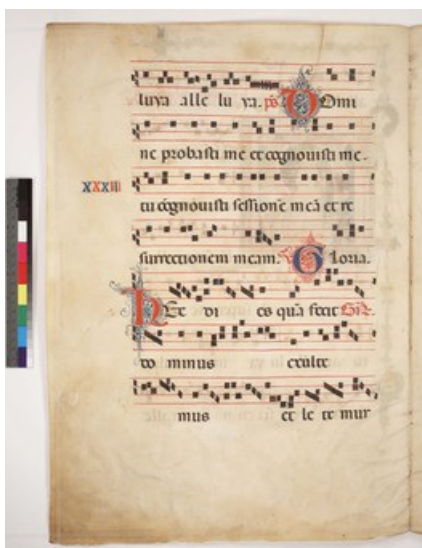 luya alle lu ya. ps Domi
ne probasti me et cognouisti me.
XXXIII
tu cognouisti sessionē meā et re
surrectionem meam. Gloria.
HEc di es quā fecit
do minus exulte
mus et le te mur